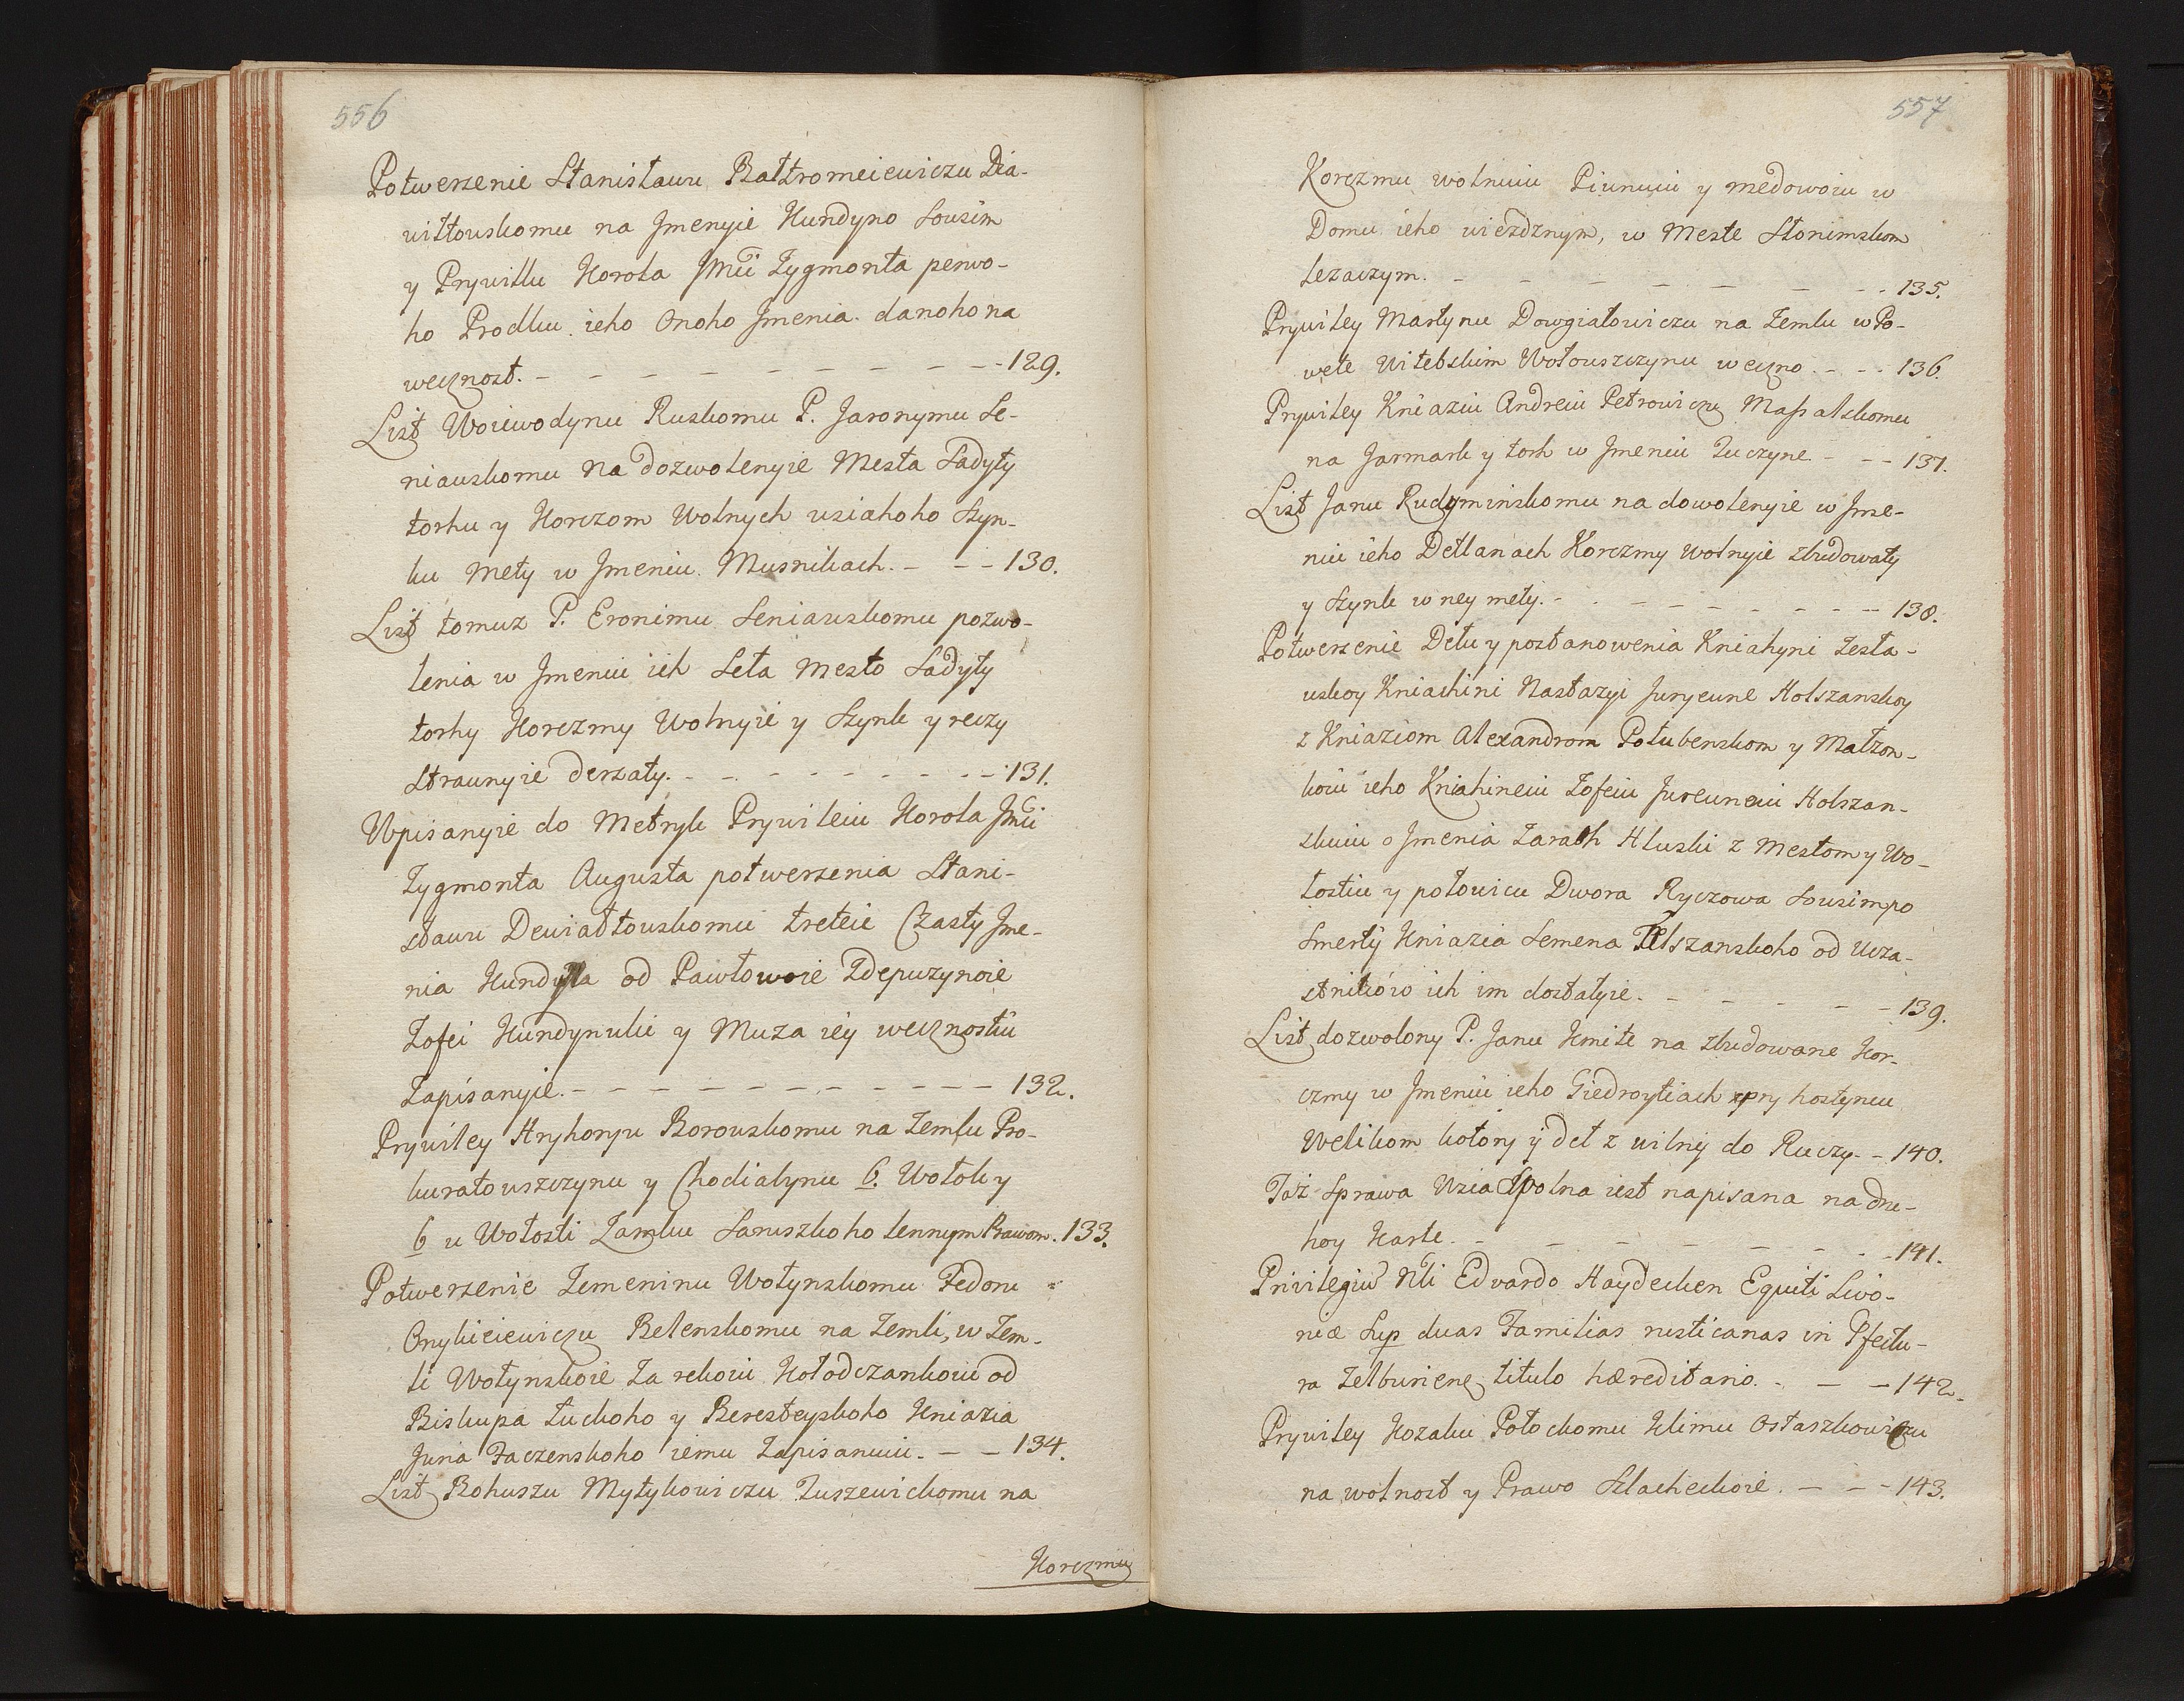 556
Potwerzenie Stanisławu Bałtromeiewiczu Dia-
wiłtouskomu na Jmenyie Kundyno Sousim
y Prywillu Korola JMći Zygmonta perwo-
ho Prodku ieho Onoho Jmenia danoho na
wecznost. - - - - - - - - - - 129.
List Woiewodynu Ruskomu P. Jaronymu Se-
niauskomu na dozwolenyie Mesta Sadyty
torhu y Korczom Wolnych usiakoho Szyn-
ku Mety w Jmeniu Musnikach. - - - 130.
List tomuz P. Eronimu Seniauskomu pozwo-
lenia w Jmeniu ich Seła Mesto Sadyty
torhy Korczmy Wolnyie y Szynk y reczy
Straunyie derzaty. - - - - - - - - - 131.
Wpisanyie do Metryk Prywileiu Korola JMći
Zygmonta Augusta potwerzenia Stani-
sławu Dewiałtouskomu treteie Czasty Jme-
nia Kundyna od Pawłowoie Zdepuzynoie
Zofei Kundynukie y Muza iey wecznostiu
Zapisanyie. - - - - - - - - - - 132.
Prywiley Hryhoryu Borouskomu na Zemlu Pro-
kuratouszczynu y Chodiakynu 6. Wołok y
6 u Wołosti Zamku Saruszkoho lennym Prawom. 133.
Potwerzenie Zemeninu Wołynskomu Fedoru
Onykieiewiczu Belenskomu na Zemli, w Zem-
li Wołynskoie Za rekoiu Hołodczankoiu od
Biskupa Łuckoho y Beresteyskoho Kniazia
Jura Faczenskoho iemu Zapisanuiu. - - 134.
List Bohuszu Mytykowiczu Tuszewickomu na
Korczmu
557
Korczmu wolnuiu Piunuiu y medowoiu w
Domu ieho wiezdznym, w Meste Słonimskom
lezaczym. - - - - - - - - 135.
Prywiley Martynu Dowgiałowiczu na Zemlu w Po-
wete Witebskim Wołouszczynu weczno. - - - 136.
Prywiley Kniaziu Andreiu Petrowiczu Massalskomu
na Jarmark y torh w Jmeniu Zuczyne - - - 137.
List Janu Rudominskomu na dowolenyie w Jme-
niu ieho Detlanach Korczmy wolnyie zbudowaty
y Szynk w ney mety. - - - - - - - - - 138.
Potwerzenie Dełu y postanowenia Kniahyni Zesła-
uskoy Kniachini Nastazyi Juryeune Holszanskoy
z Kniaziom Alexandrom Połubenskom y Małzon-
koiu ieho Kniahineiu Zofeiu Jureuneiu Holszan-
skuiu o Jmenia Zarach Hluski z Mestom y Wo-
łostiu y połowicu Dwora Ryczowa Sousim po
Smerty Kniazia Semena Holszanskoho od Ucza-
stnikow ich im dostałyie. - - - - - - 139.
List dozwolony P. Janu Kmite na zbudowane Kor-
czmy w Jmeniu ieho Giedroytiach pry hostyncu
Welikom kotory ydet z wilny do Ruczy. - 140.
Taż Sprawa Uzia Spolna iest napisana na dru-
hoy Karte. - - - - - - - - 141.
Privilegiū Nli Edvardo Haydecken Equiti Livo-
niæ Sup duas Familias rusticanas in Pfectu-
ra Zelburiene, titulo hæreditario. - - - 142.
Prywiley Kozaku Połockomu Klimu Ostaszkowiczu
na wolnost y Prawo Szlacheckoie. - - - 143.